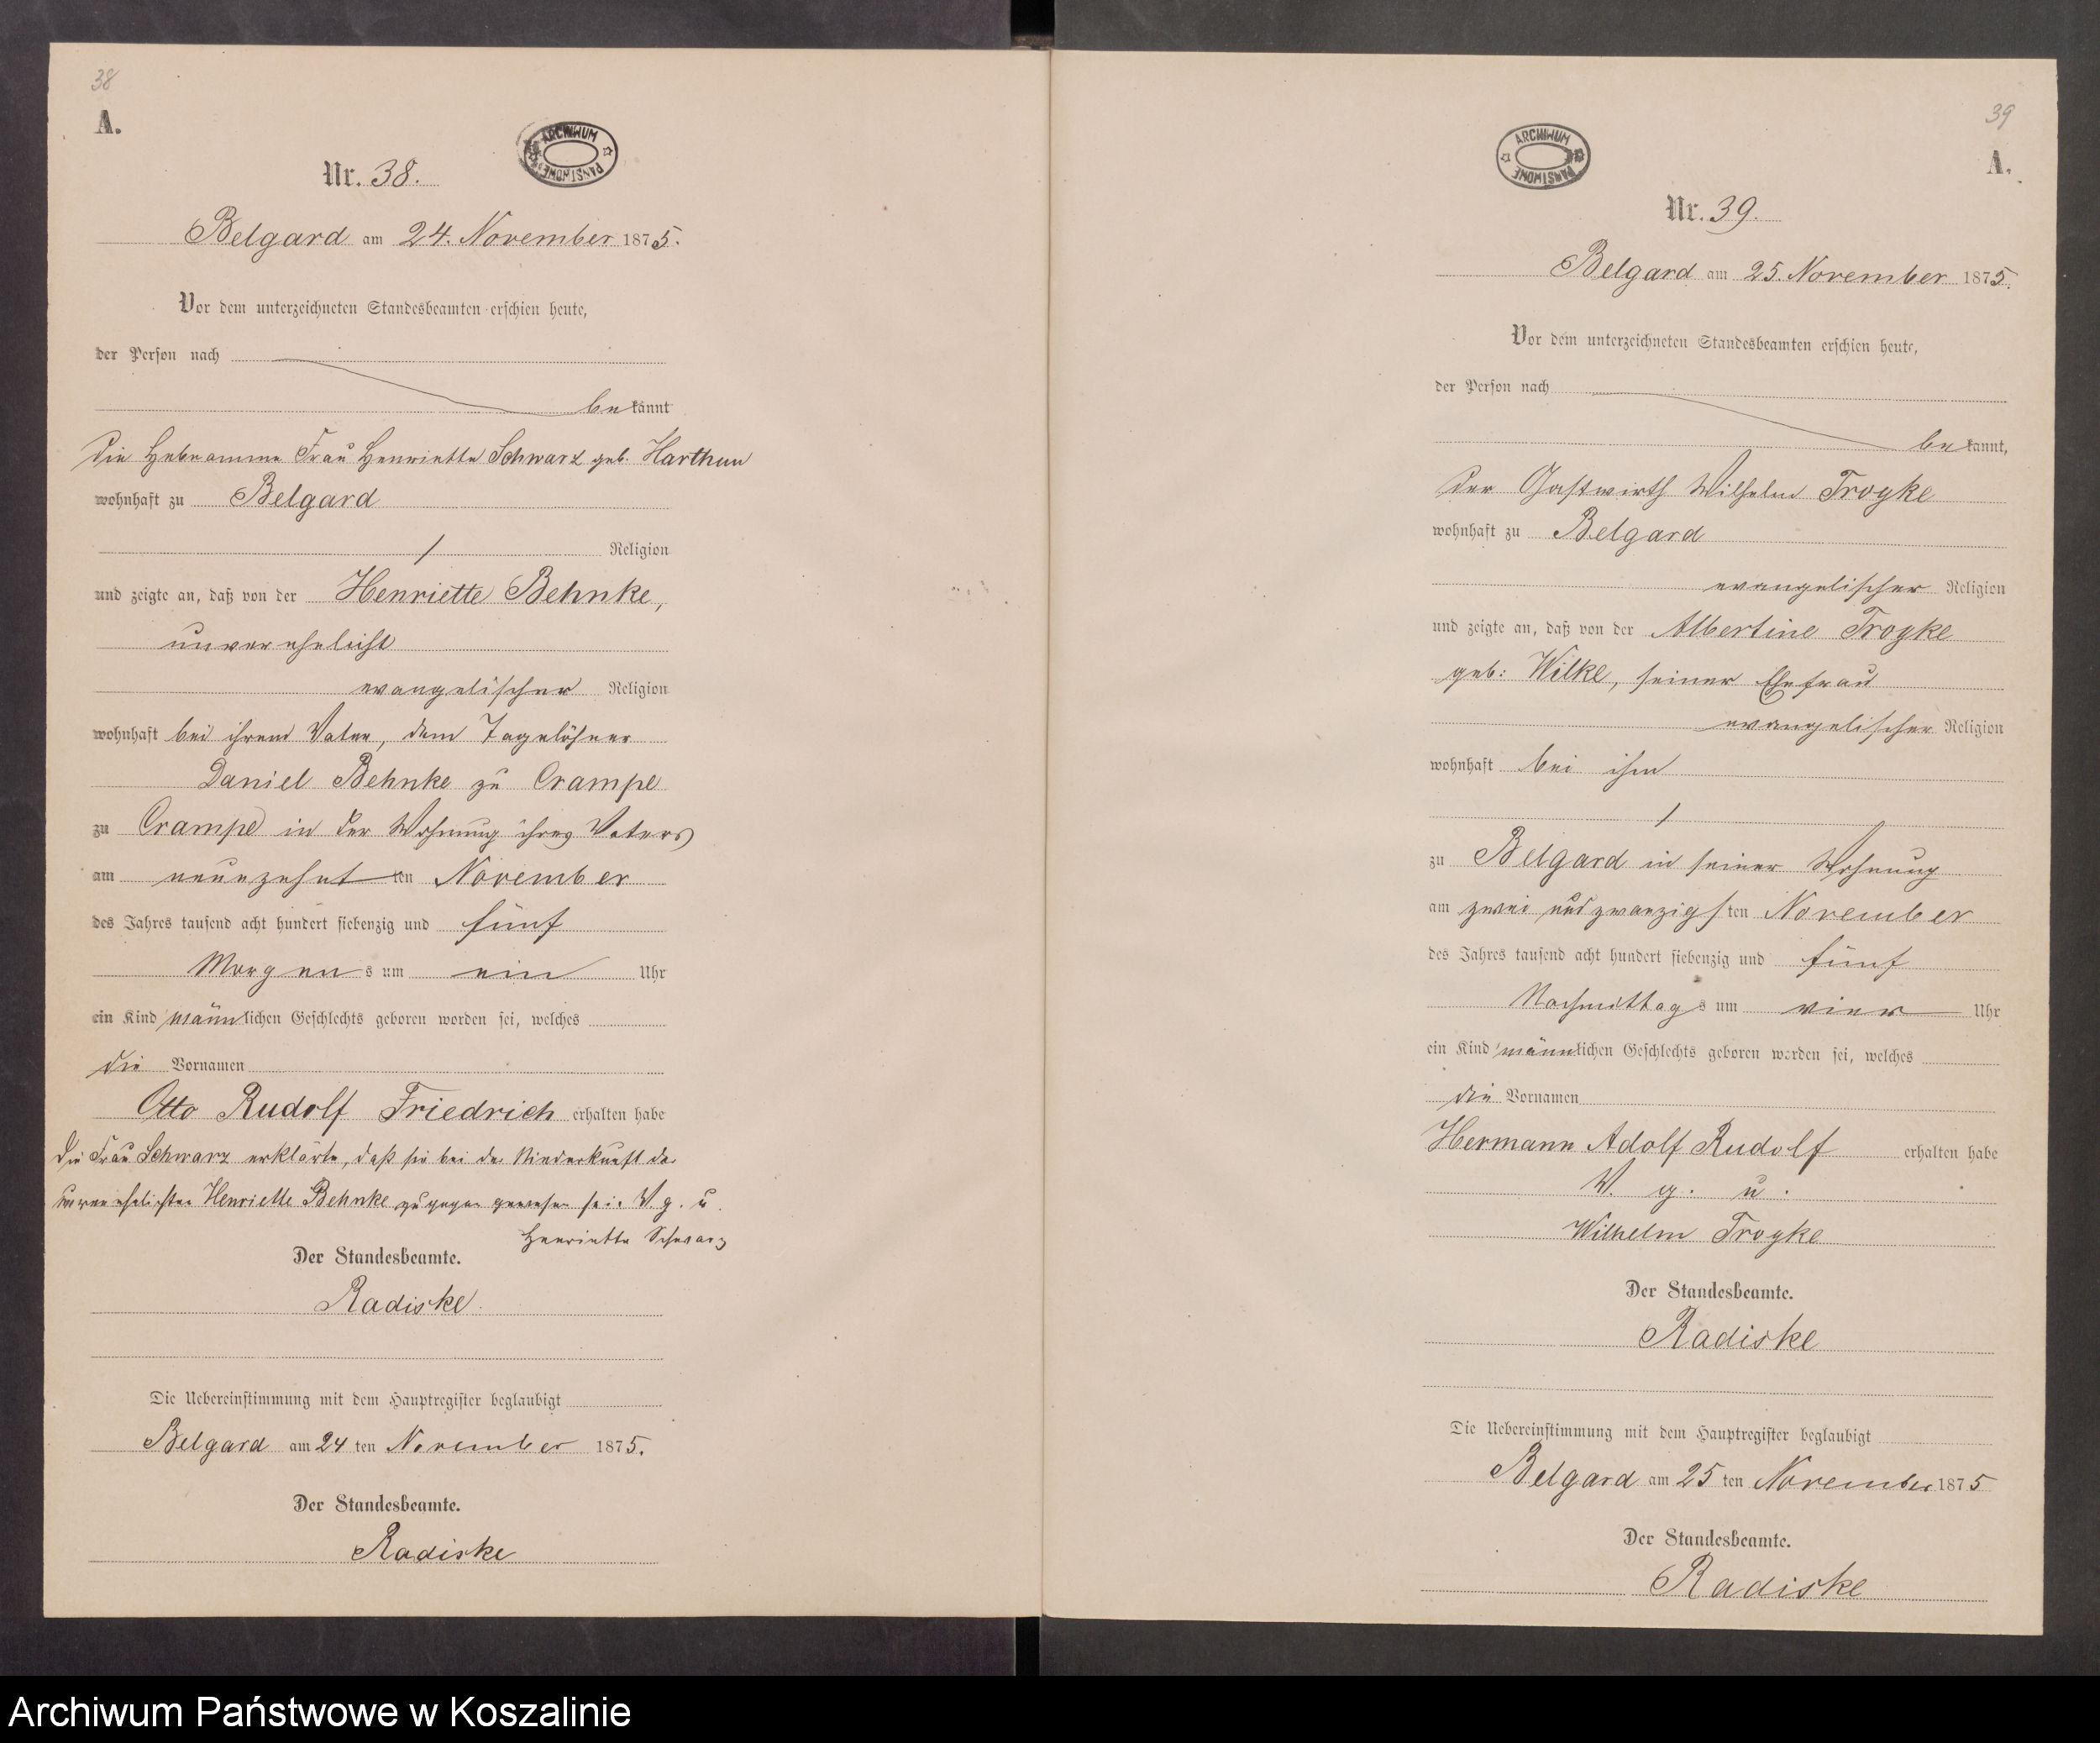 38
A.
ARCHIWUM PAŃSTWOWE
Nr. 38.
Belgard am 24. November 1875.
Vor dem unterzeichneten Standesbeamten erschien heute,
der Person nach
bekannt
die Hebeamme Frau Henriette Schwarz geb. Harthun
wohnhaft zu Belgard
/ Religion
und zeigte an, daß von der Henriette Behnke,
unverehelicht
evangelischer Religion
wohnhaft bei ihrem Vater, dem Tagelöhner
Daniel Behnke zu Crampe
zu Crampe in der Wohnung ihres Vaters
am neunzehnten November
des Jahres tausend acht hundert siebenzig und fünf
Morgens um ein Uhr
ein Kind männlichen Geschlechts geboren worden sei, welches
die Vornamen
Otto Rudolf Friedrich erhalten habe
Die Frau Schwarz erklärte, daß sie bei der Niederkunft der
unverehelichten Henriette Behnke zugegen gewesen sei. V. g. u.
Henriette Schwarz
Der Standesbeamte.
Radiske.
Die Uebereinstimmung mit dem Hauptregister beglaubigt
Belgard am 24 ten November 1875.
Der Standesbeamte.
Radiske
39
A.
ARCHIWUM PAŃSTWOWE
Nr. 39.
Belgard am 25. November 1875.
Vor dem unterzeichneten Standesbeamten erschien heute,
der Person nach
bekannt,
der Gastwirth Wilhelm Trogke
wohnhaft zu Belgard
evangelischer Religion
und zeigte an, daß von der Albertine Trogke
geb: Wilke, seiner Ehefrau
evangelischer Religion
wohnhaft bei ihm
/
zu Belgard in seiner Wohnung
am zwei und zwanzigsten November
des Jahres tausend acht hundert siebenzig und fünf
Nachmittags um vier Uhr
ein Kind männlichen Geschlechts geboren worden sei, welches
die Vornamen
Hermann Adolf Rudolf erhalten habe
V. g. u.
Wilhelm Trogke
Der Standesbeamte.
Radiske
Die Uebereinstimmung mit dem Hauptregister beglaubigt
Belgard am 25 ten November 1875
Der Standesbeamte.
Radiske
Archiwum Państwowe w Koszalinie